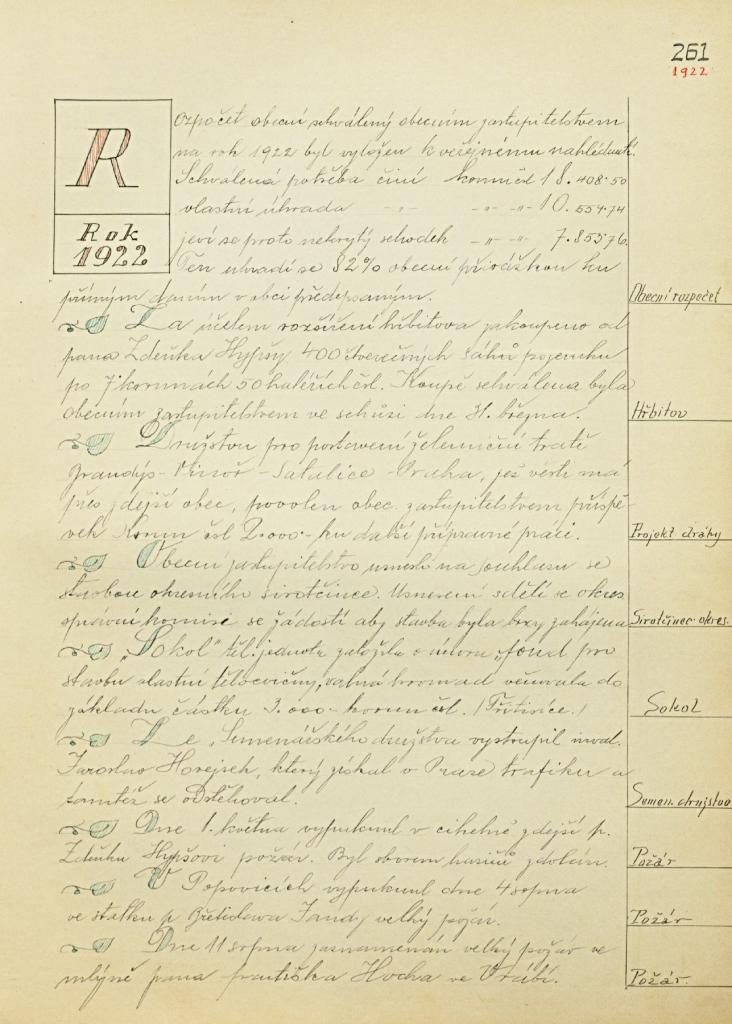 261
1922
R
Rok
1922
ozpočet obecní schválený obecním zastupitelstvem
na rok 1922 byl vyložen k veřejnému nahlédnutí.
Schválená potřeba činí korun čsl 18.408·50
vlastní úhrada -"- -"- -"- 10.554·74
jeví se proto nekrytý schodek -"- -"- 7.855 76.
Ten uhradí se 82% obecní přirážkou ku
přímým daním v obci předepsaným.
Obecní rozpočet
Za účelem rozšíření hřbitova zakoupeno od
pana Zdeňka Hypšy 400 čtverečných sáhů pozemku
po 7 korunách 50 haléřích čsl. Koupě schválena byla
obecním zastupitelstvem ve schůzi dne 31. března.
Hřbitov
Družstvu pro postavení železniční tratě
Brandýs - Vinoř - Satalice - Praha, jež vésti má
přes zdejší obec, povolen obec. zastupitelstvem příspě-
vek Korun čsl 2.000·- ku další přípravné práci.
Projekt dráhy
Obecní zastupitelstvo usneslo na souhlasu se
stavbou okresního sirotčince. Usnesení sdělí se okres.
správní komisi se žádostí aby stavba byla brzy zahájena
Sirotčinec okres.
"Sokol" těl. jednota založila v únoru "fond pro
stavbu vlastní tělocvičny, valná hromad věnovala do
základu částku 3.000·- korun čsl. (Třitisíce.)
Sokol
Ze "Semenářského družstva vystoupil inval.
Jaroslav Horejsek, který získal v Praze trafiku a
tamtéž se odstěhoval.
Semen. družstvo
Dne 1. května vypuknul v cihelně zdejší p.
Zdeňku Hypšovi požár. Byl sborem hasičů zdolán.
Požár
V Popovicích vypuknul dne 4 srpna
ve statku p. Břetislava Jandy velký požár.
Požár
Dne 11 srpna zaznamenán velký požár ve
mlýně pana Františka Hocha ve Vrábí.
Požár.